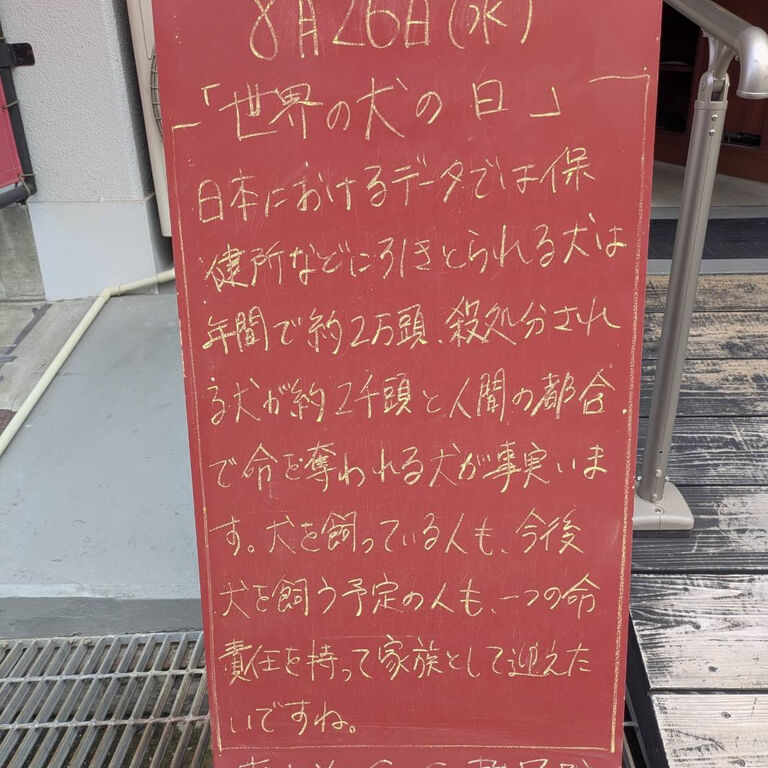 8月26日(水)
「世界の犬の日」
日本におけるデータでは保
健所などに引きとられる犬は
年間で約2万頭、殺処分され
る犬が約2千頭と人間の都合
で命を奪われる犬が事実いま
す。犬を飼っている人も、今後
犬を飼う予定の人も、一つの命
責任を持って家族として迎えた
いですね。